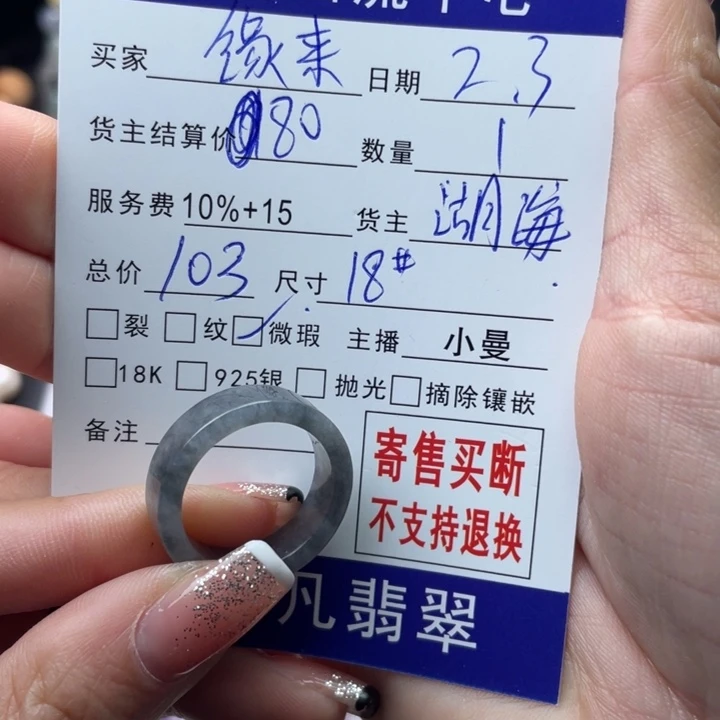 买家 缘来 日期 2.3
货主结算价 80 数量 1
服务费 10%+15 货主 湖海
总价 103 尺寸 18#
裂 纹 微瑕 主播 小曼
18K 925银 抛光 摘除镶嵌
备注
寄售买断
不支持退换
凡翡翠